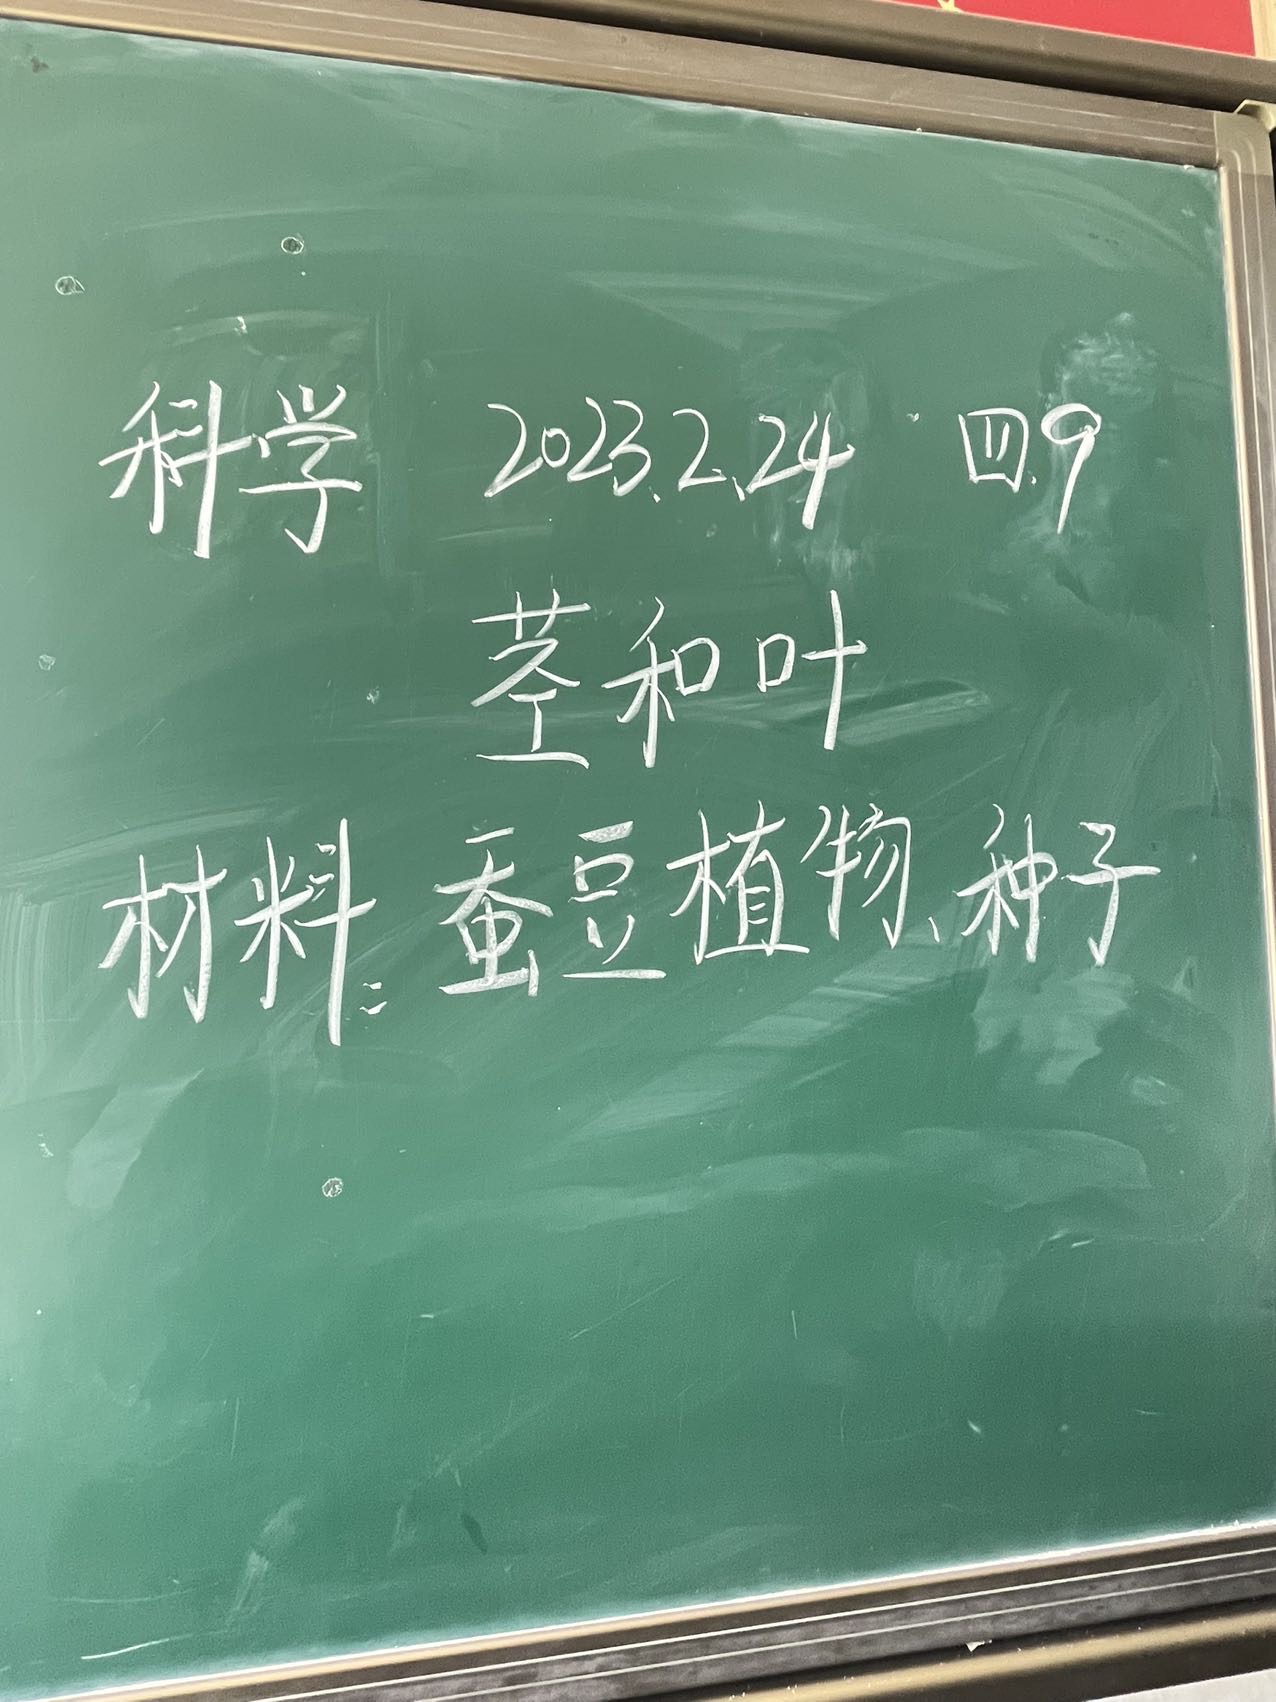 科学 2023.2.24 四.9
茎和叶
材料:蚕豆植物、种子